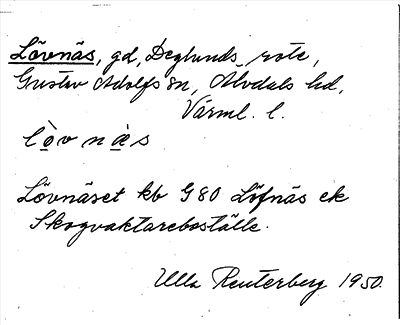 Lövnäs, gd, Deglunds rote,
Gustav Adolfs sn, Älvdals hd,
Värml. l.
lövnäs
Lövnäset kb G80 Löfnäs ek
Skogvaktareboställe.
Ulla Reuterberg 1950.